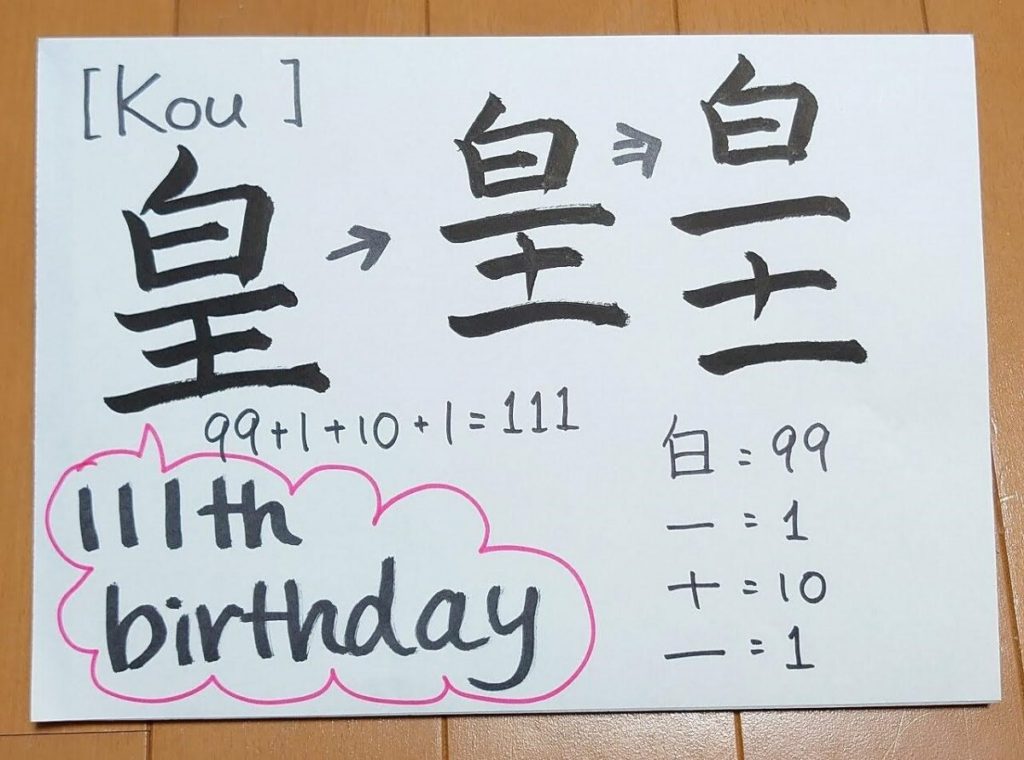 [Kou]
皇 → 皇 ⇒ 白
一
十
一
99+1+10+1=111
111th
birthday
白=99
一=1
十=10
一=1